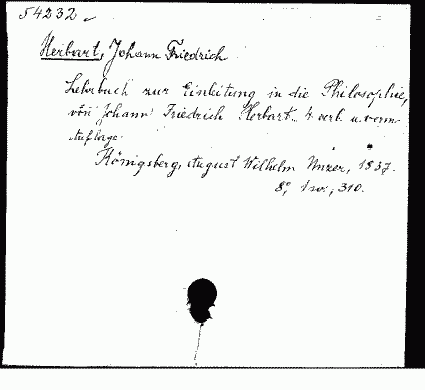 54232
Herbart, Johann Friedrich
Lehrbuch zur Einleitung in die Philosophie,
von Johann Friedrich Herbart. 4 verb. u. verm.
Auflage.
Königsberg, August Wilhelm Unzer, 1837.
8°, 310.